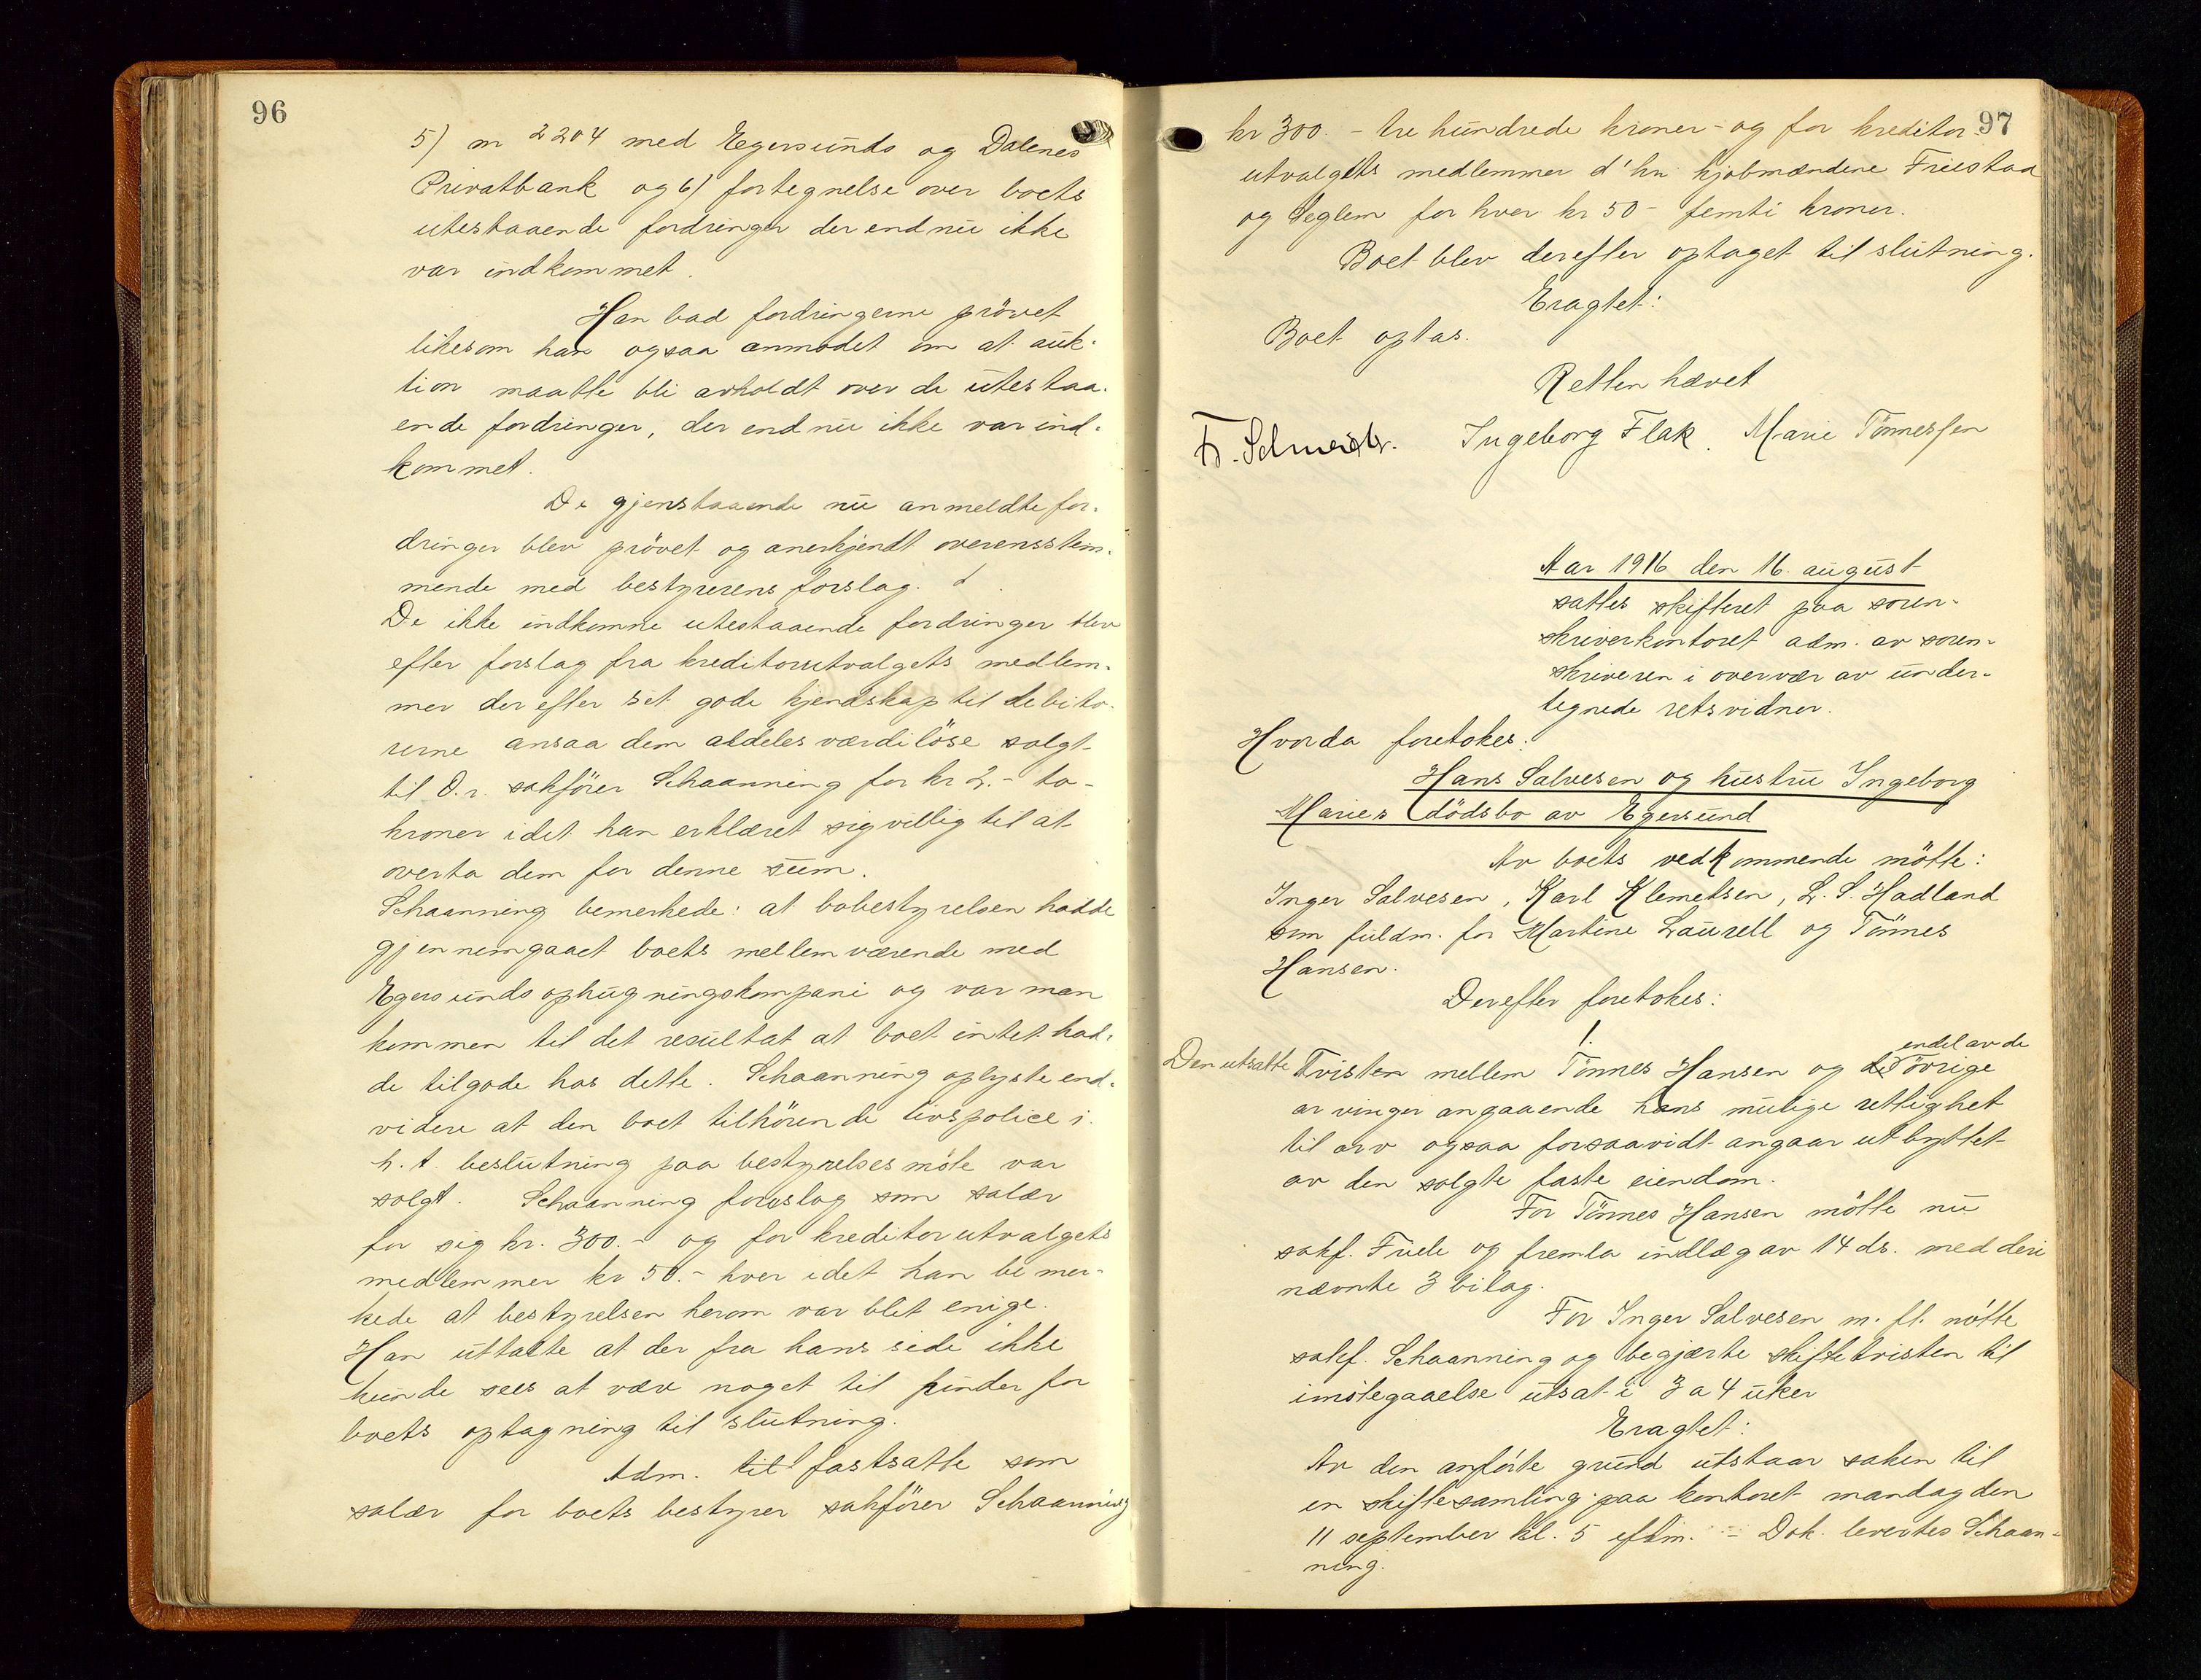 96
5) m 2204 med Egersunds og Dalenes
Privatbank og 6) fortegnelse over boets
utestaaende fordringer der endnu ikke
var indkommet.
Han bad fordringerne prövet
likesom han ogsaa anmodet om at auk-
tion maatte bli avholdt over de utestaa-
ende fordringer, der endnu ikke var ind-
kommet.
De gjenstaaende nu anmeldte for-
dringer blev prövet og anerkjendt overensstem-
mende med bestyrerens forslag.
De ikke indkomne utestaaende fordringer blev
efter forslag fra kreditorutvalgets medlem-
mer der efter sit gode kjendskap til debito-
rerne ansaa dem aldeles værdilöse solgt
til O.r. sakförer Schaanning for kr 2.- to-
kroner idet han erklæret sig villig til at
overta dem for denne sum.
Schaanning bemerkede: at bobestyrelsen hadde
gjennemgaaet boets mellemværende med
Egersunds ophugningskompani og var man
kommen til det resultat at boet intet had-
de tilgode hos dette. Schaanning oplyste end-
videre at den boet tilhörende livspolice i
h.t. beslutning paa bestyrelsesmöte var
solgt. Schaanning foreslog som salær
for sig kr. 300.- og for kreditorutvalgets
medlemmer kr 50.- hver idet han bemer-
kede at bestyrelsen herom var blit enige.
Han uttalte at der fra hans side ikke
kunde sees at være noget til hinder for
boets optagning til slutning.
Adm. til fastsatte som
salær for boets bestyrer sakförer Schaanning
97
kr 300.- tre hundrede kroner - og for kreditor-
utvalgets medlemmer d'hr. kjöbmændene Friestad
og Seglem for hver kr 50- femti kroner.
Boet blev derefter optaget til slutning.
Eragtet:
Boet optas.
Retten hævet
Ingeborg Flak. Marie Tönnessen
Aar 1916 den 16. august
sattes skifteret paa soren-
skriverkontoret adm. av soren-
skriveren i overvær av under-
tegnede retsvidner.
Hvorda foretokes:
Hans Salvesen og hustru Ingeborg
Maries dödsbo av Egersund
Av boets vedkommende mötte:
Inger Salvesen, Karl Klemetsen, L. S. Hadland
som fuldm. for Martine Laurell og Tönnes
Hansen.
Derefter foretokes:
1.
endel av de
Den utsatte Tvisten mellem Tönnes Hansen og de övrige
arvinger angaaende hans mulige rettighet
til arv ogsaa forsaavidt angaar utbyttet
av den solgte faste eiendom.
For Tönnes Hansen mötte nu
sakf. Fuele og fremla indlæg av 14 ds. med deri
nævnte 3 bilag.
For Inger Salvesen m. fl. mötte
sakf. Schaanning og begjærte skiftetvisten til
imötegaaelse utsat i 3 a 4 uker
Eragtet:
Av den anförte grund utstaar saken til
en skiftesamling paa kontoret mandag den
11 september kl. 5 eftm. - Dok. levertes Schaan-
ning.